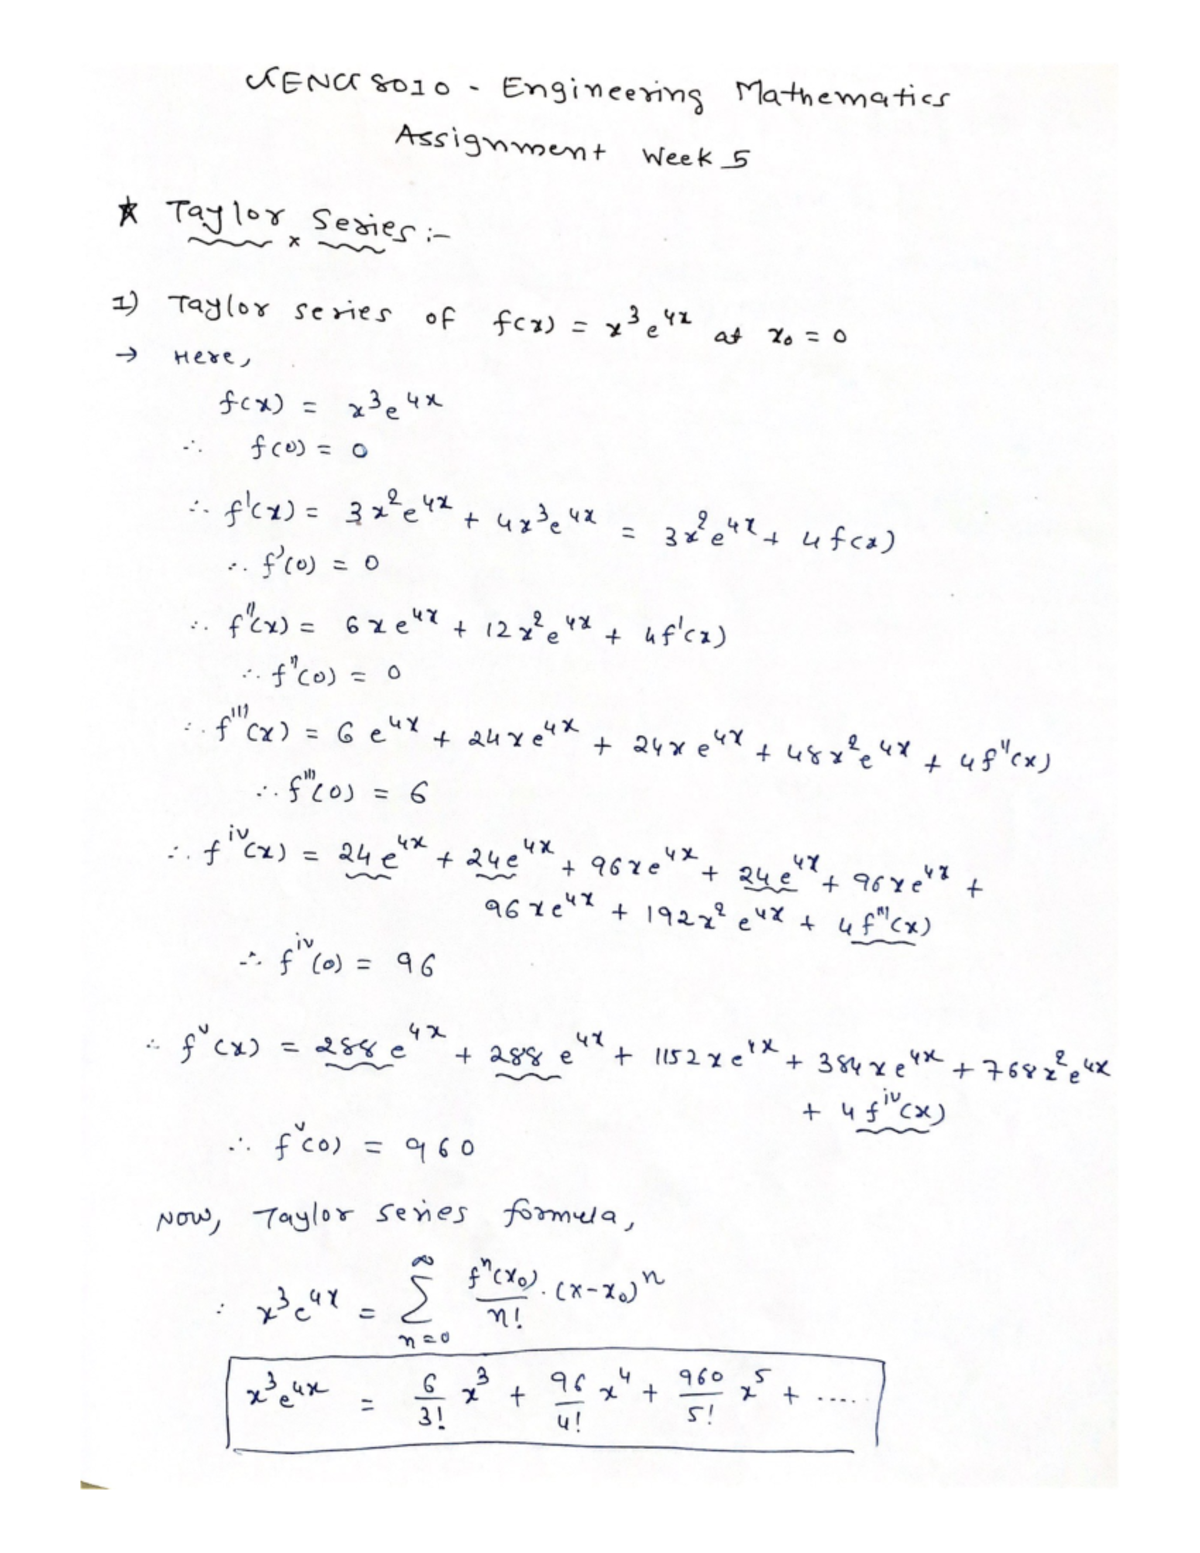 GENG 8010 - Engineering Mathematics
Assignment Week 5
★ Taylor Series :-
1) Taylor series of f(x) = x³e⁴ˣ at x₀ = 0
→ Here,
f(x) = x³e⁴ˣ
∴ f(0) = 0
∴ f'(x) = 3x²e⁴ˣ + 4x³e⁴ˣ = 3x²e⁴ˣ + 4f(x)
∴ f'(0) = 0
∴ f''(x) = 6xe⁴ˣ + 12x²e⁴ˣ + 4f'(x)
∴ f''(0) = 0
∴ f'''(x) = 6e⁴ˣ + 24xe⁴ˣ + 24xe⁴ˣ + 48x²e⁴ˣ + 4f''(x)
∴ f'''(0) = 6
∴ fⁱᵛ(x) = 24e⁴ˣ + 24e⁴ˣ + 96xe⁴ˣ + 24e⁴ˣ + 96xe⁴ˣ +
96xe⁴ˣ + 192x²e⁴ˣ + 4f'''(x)
∴ fⁱᵛ(0) = 96
∴ fᵛ(x) = 288e⁴ˣ + 288e⁴ˣ + 1152xe⁴ˣ + 384xe⁴ˣ + 768x²e⁴ˣ
+ 4fⁱᵛ(x)
∴ fᵛ(0) = 960
Now, Taylor series formula,
: x³e⁴ˣ = ∑_{n=0}^{∞} fⁿ(x₀)/n! · (x-x₀)ⁿ
x³e⁴ˣ = 6/3! x³ + 96/4! x⁴ + 960/5! x⁵ + .....